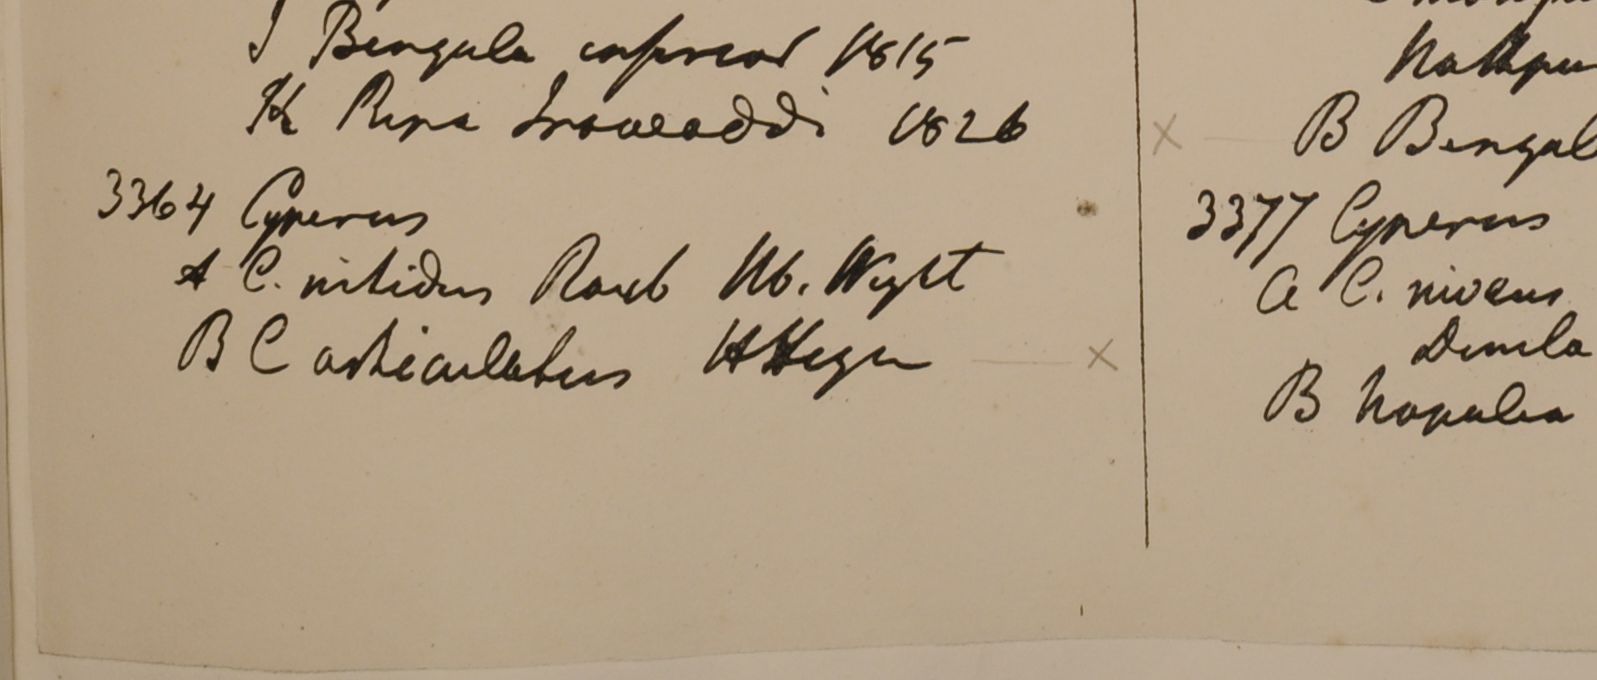 J Bengala inferior 1815
K Ripa Irawaddi 1826
3364 Cyperus
A C. nitidus Roxb Hb. Wight
B C articulatus H Heyn
X
X
B Bengal
3377 Cyperus
a C. niveus
B Napalia